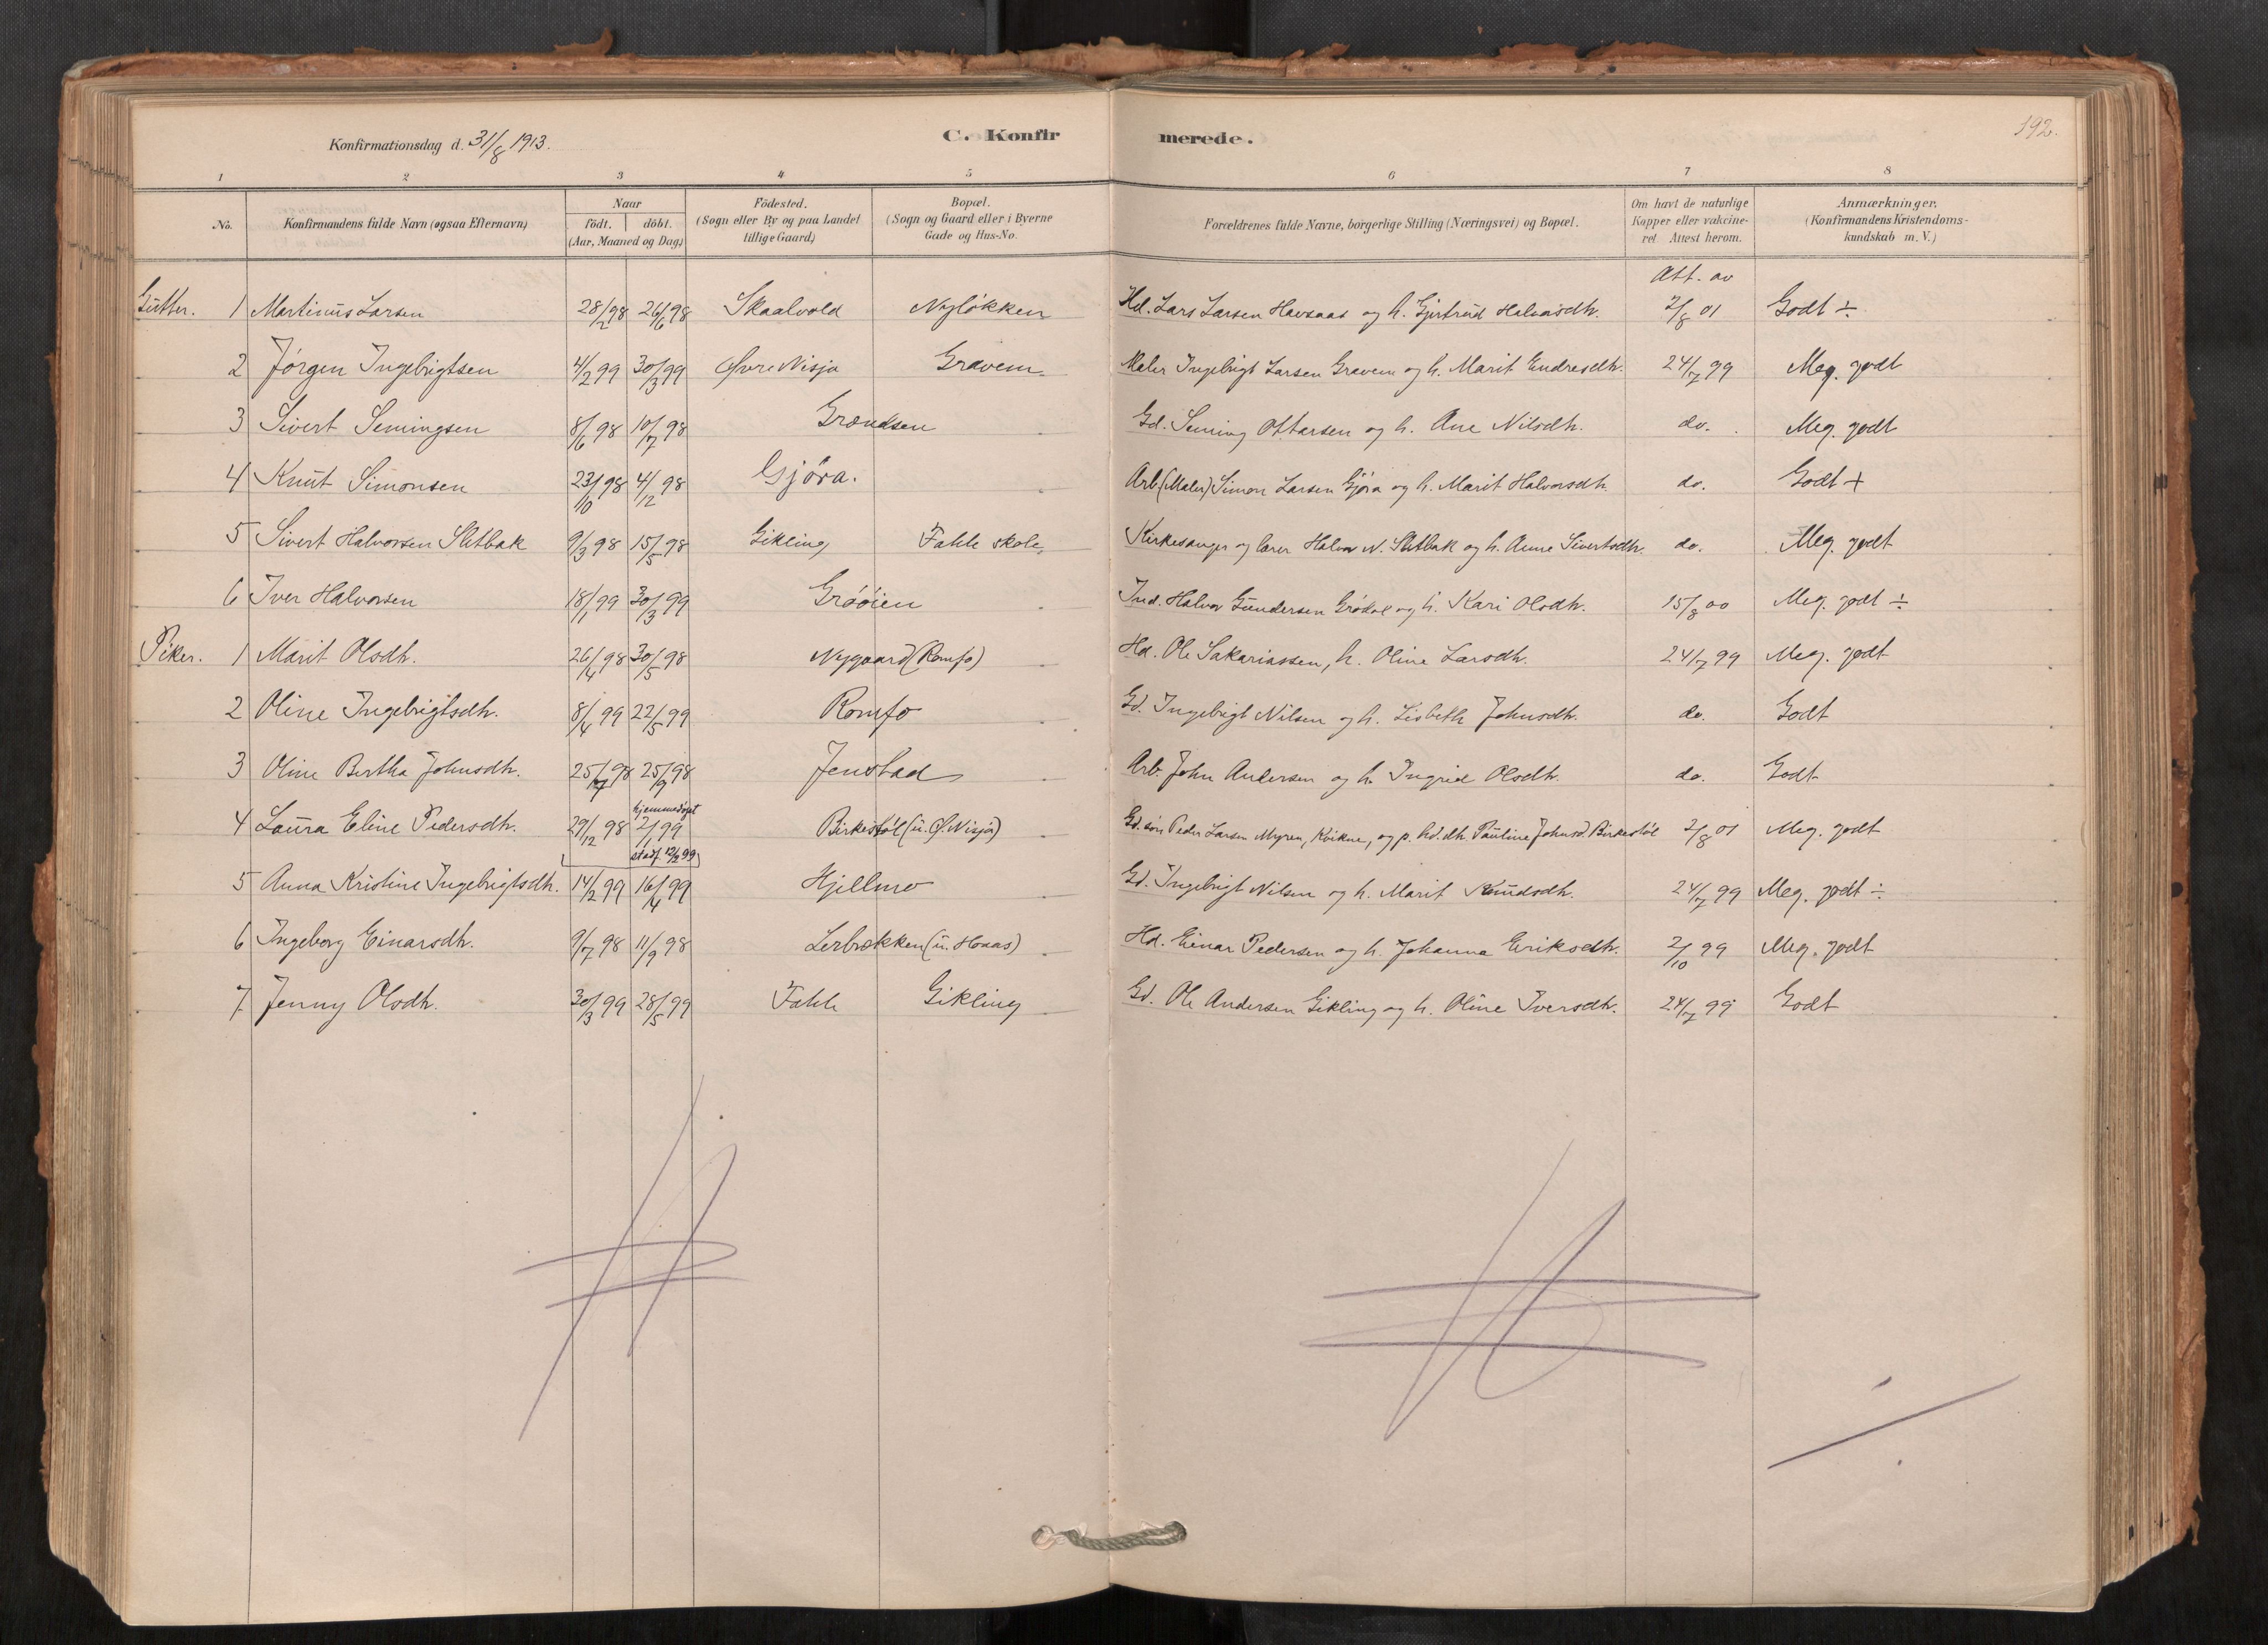 Konfirmationsdag d. 31/8 1913.
C. Konfirmerede.
192.
1 2 3 4 5 6 7 8
No. Konfirmandens fulde Navn (ogsaa Efternavn) Naar födt. döbt. (Aar, Maaned og Dag) Födested. (Sogn eller By og paa Landet tillige Gaard) Bopæl. (Sogn og Gaard eller i Byerne Gade og Hus-No. Forældrenes fulde Navne, borgerlige Stilling (Næringsvei) og Bopæl. Om havt de naturlige Kopper eller vakcineret Attest herom. Anmærkninger. (Konfirmandens Kristendomskundskab m. V.)
Att. av
Gutter. 1 Martinus Larsen 28/2 98 26/6 98 Skaalvold Nyløkken Hd. Lars Larsen Havsaas og h. Gjertrud Halvorsdh. 2/8 01 Godt ÷
2 Jørgen Ingebrigtsen 4/2 99 30/3 99 Øvre Nisja Gravem Maler Ingebrigt Larsen Gravem og h. Marit Endresdh. 24/7 99 Meg. godt
3 Sivert Semingsen 8/6 98 10/7 98 Grændsen Gd. Seming Ottarsen og h. Ane Nilsdh. do. Meg. godt
4 Knut Simonsen 23/10 98 4/12 98 Gjøra. Arb. (Maler) Simon Larsen Gjøra og h. Marit Halvorsdh. do. Godt +
5 Sivert Halvorsen Sletbak 9/3 98 15/5 98 Gikling Fahle skole Kirkesanger og lærer Halvor N. Sletbak og h. Anne Sivertsdh. do. Meg. godt
6 Iver Halvorsen 18/1 99 30/3 99 Grøøien Ind. Halvor Gundersen Grødal og h. Kari Olsdh. 15/8 00 Meg. godt ÷
Piker. 1 Marit Olsdh. 26/4 98 30/5 98 Nygaard (Romfo) Hd. Ole Sakariassen, h. Oline Larsdh. 24/7 99 Meg. godt
2 Oline Ingebrigtsdh. 8/4 99 22/5 99 Romfo Gd. Ingebrigt Nilsen og h. Lisbeth Johnsdh. do. Godt
3 Oline Bertha Johnsdh. 25/7 98 25/9 98 Jenstad Arb. John Andersen og h. Ingrid Olsdh. do. Godt
hjemmedøpt
4 Laura Eline Pedersdh. 29/12 98 2/1 99 Birkestøl (u. Ø. Nisja) Gd. søn Peder Larsen Myren, Kvikne, og p. hd. dh. Pauline Johnsd. Birkestøl 2/8 01 Meg. godt
stadf. 12/2 99
5 Anna Kristine Ingebrigtsdh. 14/2 99 16/4 99 Hjellmo Gd. Ingebrigt Nilsen og h. Marit Knudsdh. 24/7 99 Meg. godt ÷
6 Ingeborg Einarsdh. 9/7 98 11/9 98 Lerbækken (u. Hoaas) Hd. Einar Pedersen og h. Johanna Eriksdh. 2/10 99 Meg. godt
7. Jenny Olsdh. 30/3 99 28/5 99 Fahle Gikling Gd. Ole Andersen Gikling og h. Oline Iversdh. 24/7 99 Godt